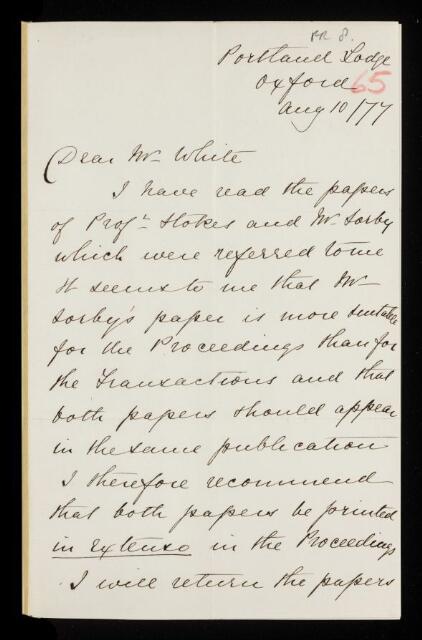 RR 8.
Portland Lodge
Oxford
65
Aug 10/77
Dear Mr White
I have read the papers
of Profr Stokes and Mr Sorby
which were referred to me
It seems to me that Mr
Sorby's paper is more suitable
for the Proceedings than for
the Transactions and that
both papers should appear
in the same publication
I therefore recommend
that both papers be printed
in extenso in the Proceedings
I will return the papers